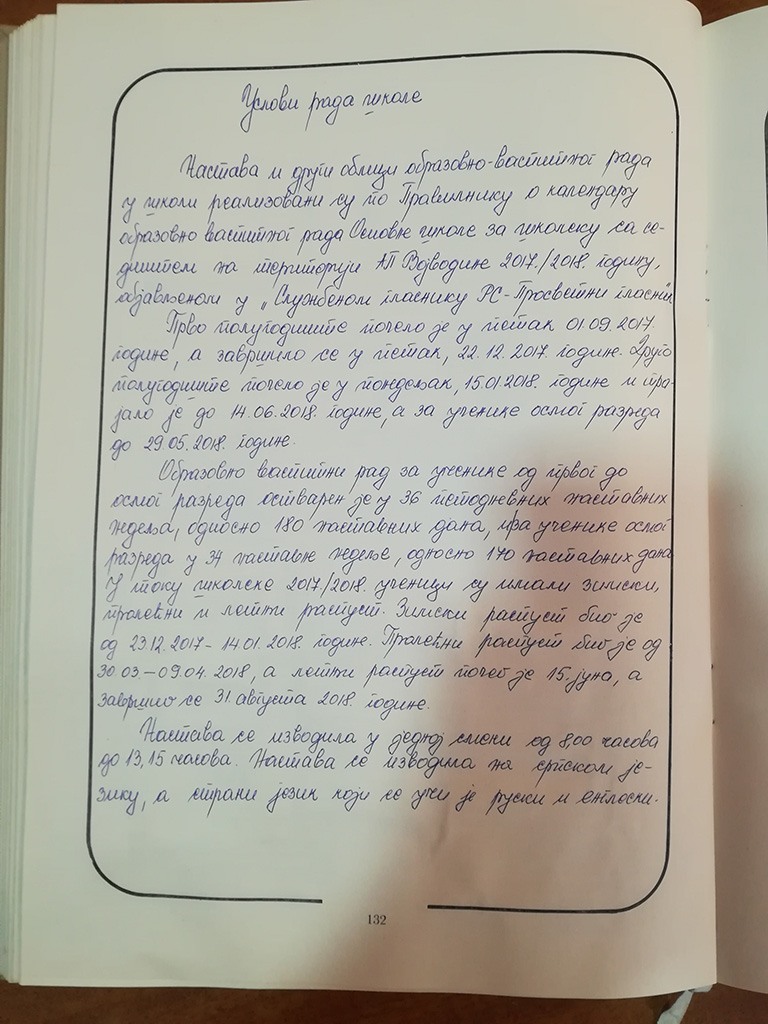 Услови рада школе
Настава и други облици образовно-васпитног рада
у школи реализовани су по Правилнику о календару
образовно васпитног рада Основне школе за школску са се-
диштем на територији АП Војводине 2017./2018. годину,
објављеном у „Службеном гласнику РС-Просветни гласник"
Прво полугодиште почело је у петак 01.09.2017.
године, а завршило се у петак, 22.12.2017. године. Друго
полугодиште почело је у понедељак, 15.01.2018. године и тра-
јало је до 14.06.2018. године, а за ученике осмог разреда
до 29.05.2018. године.
Образовно васпитни рад за ученике од првог до
осмог разреда остварен је у 36 петодневних наставних
недеља, односно 180 наставних дана, и за ученике осмог
разреда у 34 наставне недеље, односно 170 наставних дана
У току школске 2017./2018. ученици су имали зимски,
пролећни и летњи распуст. Зимски распуст био је
од 23.12.2017- 14.01.2018. године. Пролећни распуст био је од
30.03.-09.04.2018, а летњи распуст почео је 15. јуна, а
завршио се 31. августа 2018. године.
Настава се изводила у једној смени од 8,00 часова
до 13,15 часова. Настава се изводила на српском је-
зику, а страни језик који се учи је руски и енглоски.
132